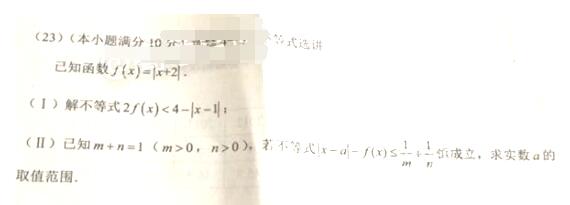 (23)(本小题满分10分) 等式选讲
已知函数 f(x)=|x+2|.
(Ⅰ)解不等式 2f(x)<4-|x-1|;
(Ⅱ)已知 m+n=1(m>0,n>0),若不等式|x-a|-f(x)≤1/m+1/n 恒成立,求实数 a 的
取值范围.